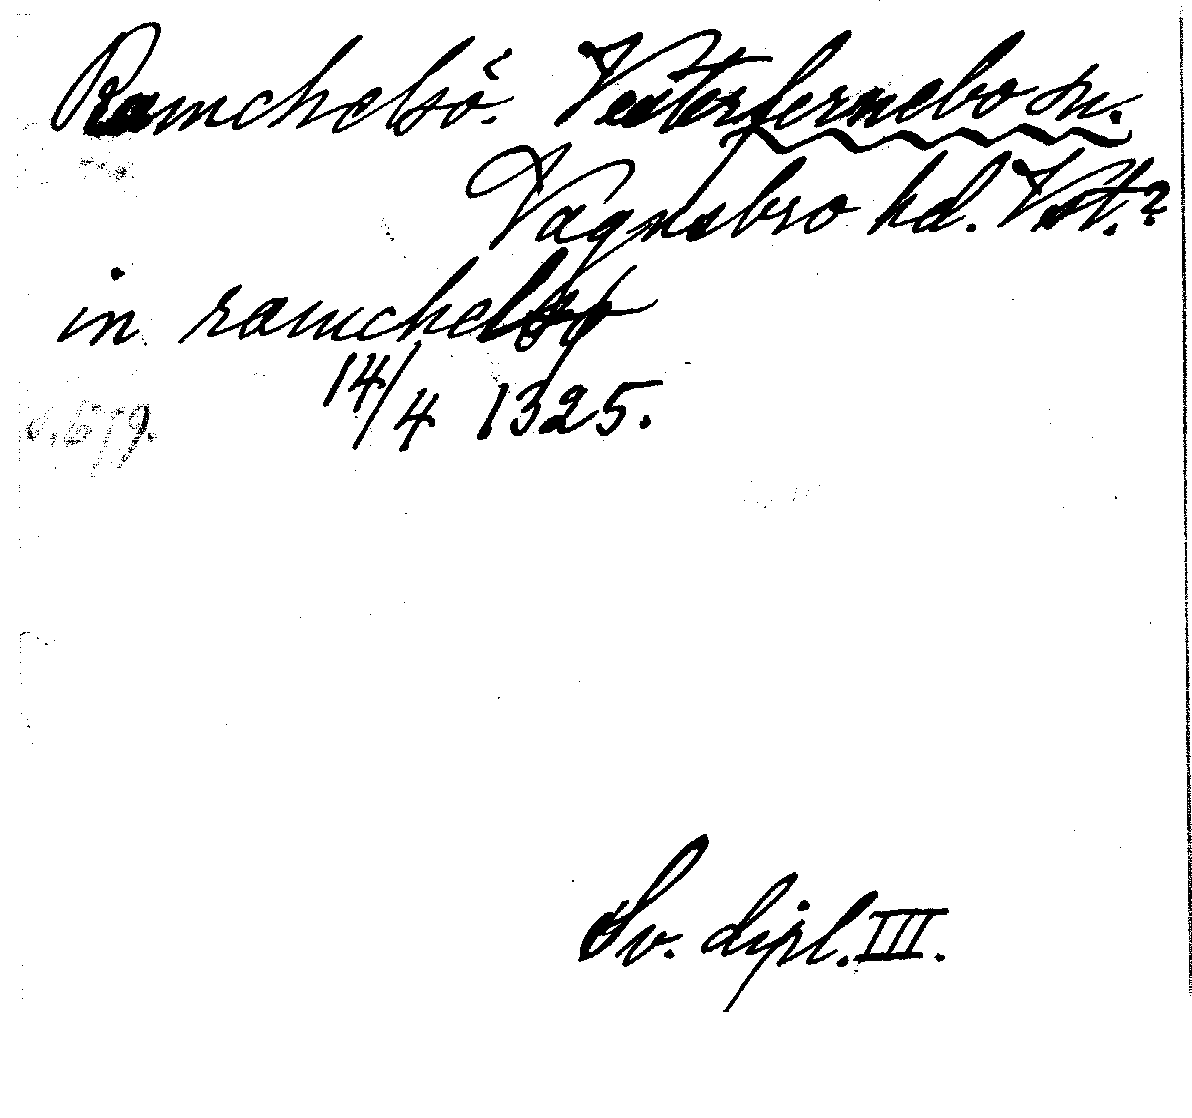 Ramchelsö. Västerfernebo sn.
Vagnsbro hd. Vst.?
in ramchelsø
14/4 1325.
s. 679.
Sv. dipl. III.